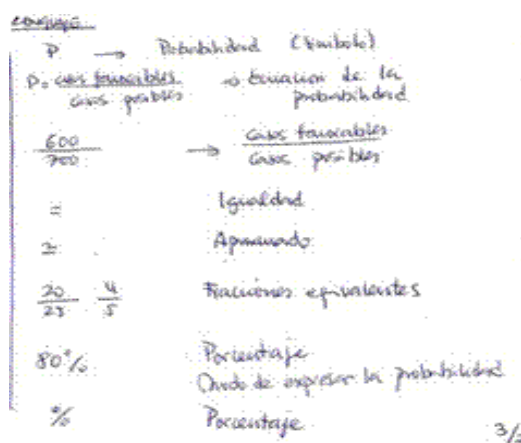 LENGUAJE
P → Probabilidad (Símbolo)
P = casos favorables / casos posibles → Ecuación de la probabilidad
600/700 → casos favorables / casos posibles
= Igualdad
≃ Aproximado
20/25 4/5 Fracciones equivalentes
80% Porcentaje
Modo de expresar la probabilidad
% Porcentaje
3/